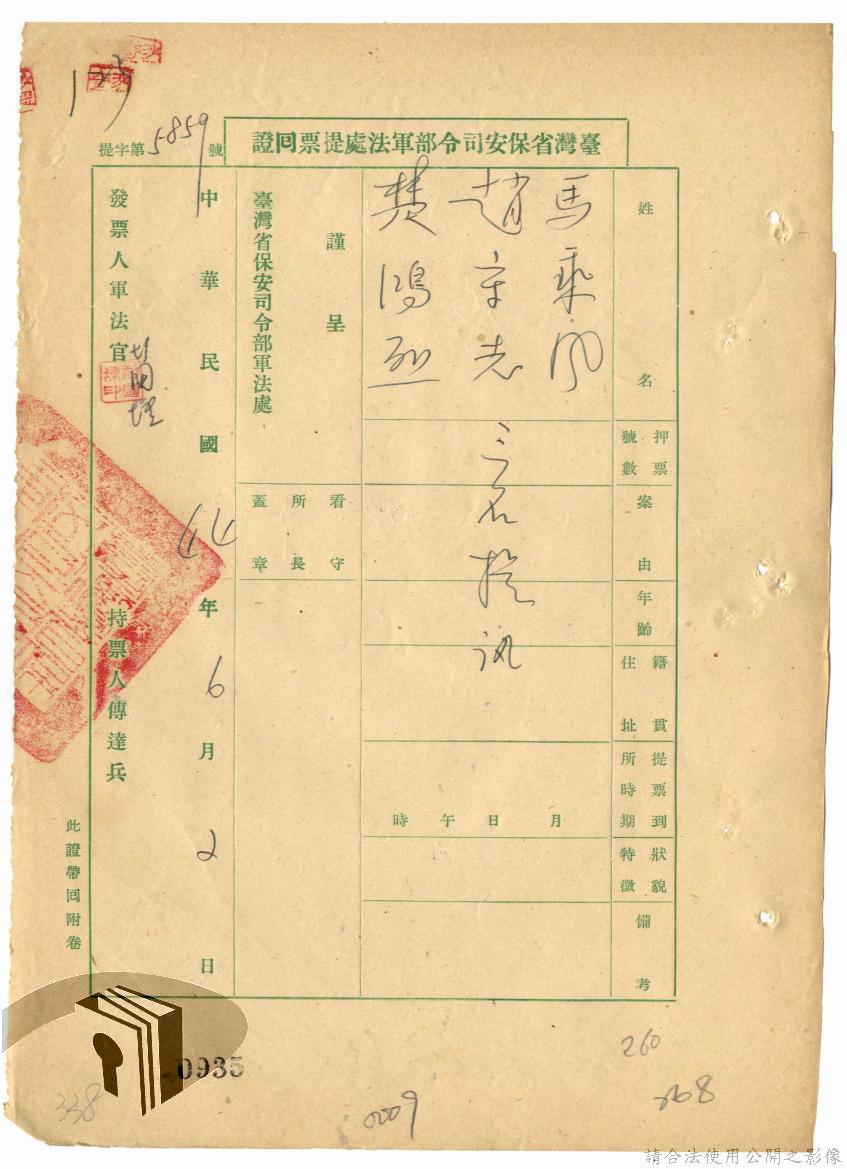 臺灣省保安司令部軍法處提票回證
提字第5859號
姓名
馬乘風
趙守志
樊鴻烈
三名提訊
押票號數
案由
年齡
籍貫住址
提票到所時期
月日午時
狀貌特徵
備考
謹呈
臺灣省保安司令部軍法處
看守所長蓋章
中華民國44年6月2日
發票人軍法官
持票人傳達兵
此證帶回附卷
0935
260
338
0009
268
請合法使用公開之影像